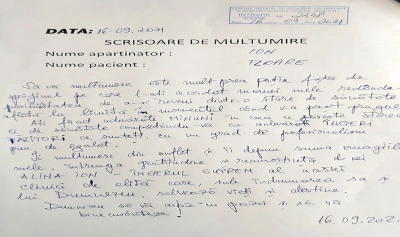 DATA: 16-09.2021
2448
16 09 2021
SCRISOARE DE MULTUMIRE
Nume apartinator : ION
Nume pacient : FLOARE
Să vă mulțumesc este mult prea puțin față de
sprijinul pe care l-ați acordat mamei mele redându-i
posibilitatea de a-și reveni dintr-o stare de sănătate
aflată la limită în momentul când v-a trecut pragul.
Ați făcut adevărate MINUNI în ceea ce privește starea
ei de sănătate comportându-vă ca adevărați ÎNGERI
PĂZITORI ai smuți, cu un grad de profesionalism
greu de egalat.
Îi mulțumesc din suflet și îi depun suma omagiilor
mele întreaga gratitudine și recunoștință d-nei
ALINA ION - ÎNGERUL SUPREM al acestei
clinici de elită care, sub îndrumarea sa și
lui Dumnezeu, salvează vieți și destine.
Dumnezeu să vă aibă în pază și să vă
binecuvânteze!
16.09.202